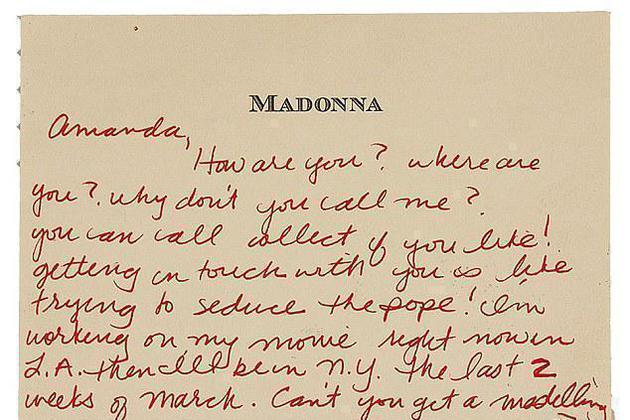 MADONNA
Amanda,
How are you? where are
you? why don't you call me?
you can call collect if you like!
getting in touch with you is like
trying to seduce the pope! I'm
working on my movie right now in
L.A. then I'll be in N.Y. the last 2
weeks of March. Can't you get a modelling